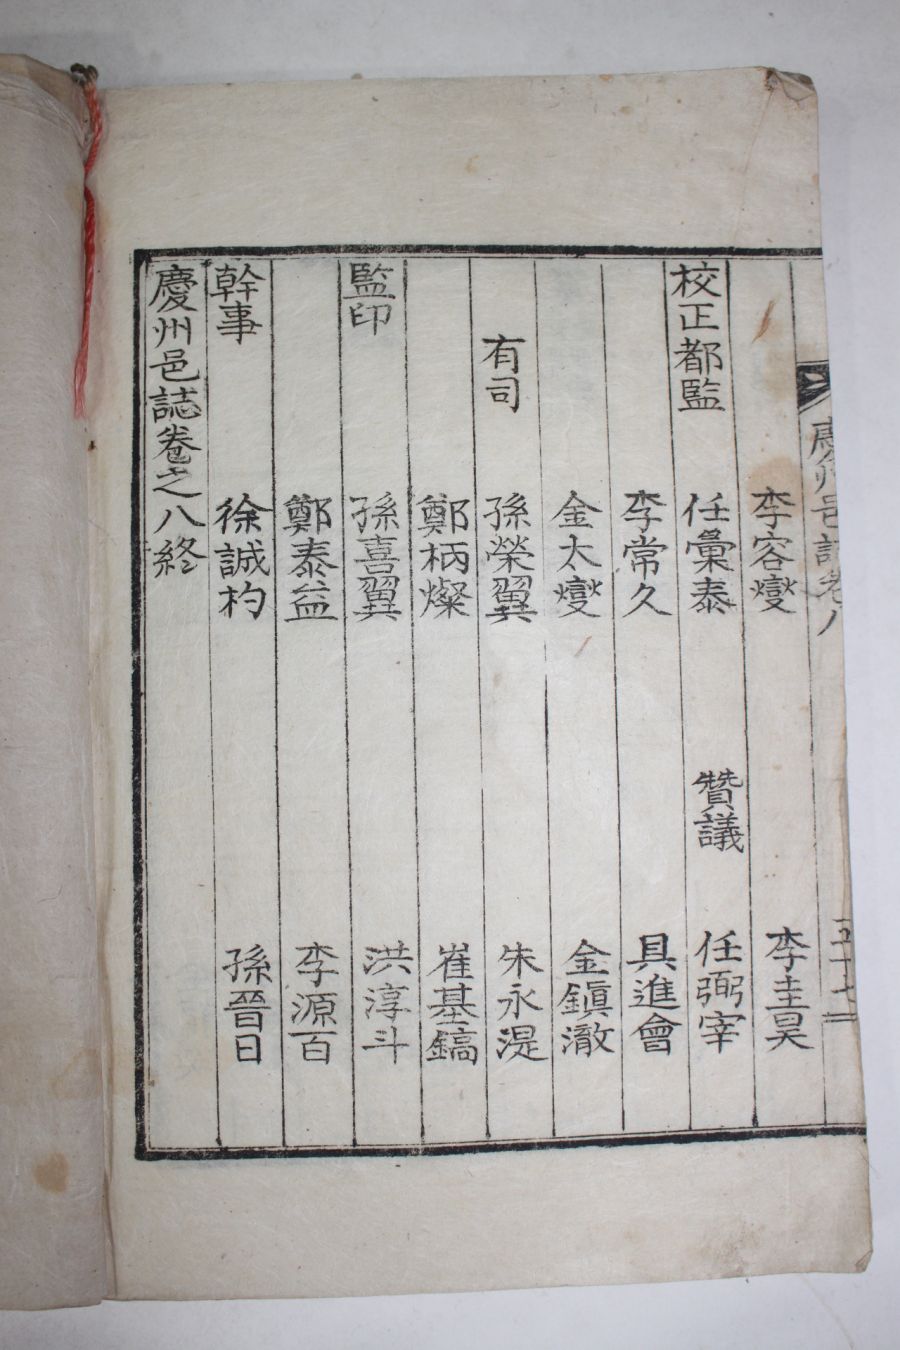 慶州邑誌卷八
李容燮 李圭昊
校正都監 任彙泰 贊議 任弼宰
李常久 具進會
金太燮 金鎭澈
有司 孫榮翼 朱永湜
鄭柄燦 崔基鎬
監印 孫喜翼 洪淳斗
鄭泰益 李源百
幹事 徐誠杓 孫晉日
慶州邑誌卷之八終